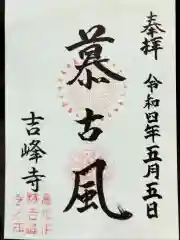 奉拝
令和四年五月五日
慕古風
吉峰寺